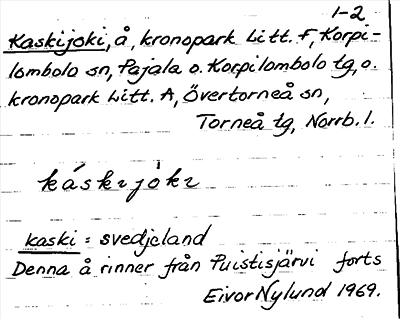 1-2
Kaskijoki, å, kronopark Litt. F, Korpi-
lombolo sn, Pajala o. Korpilombolo tg, o.
kronopark Litt. A, Övertorneå sn,
Torneå tg, Norrb. l.
káskɩjòkɩ
kaski = svedjeland
Denna å rinner från Puistisjärvi forts
Eivor Nylund 1969.